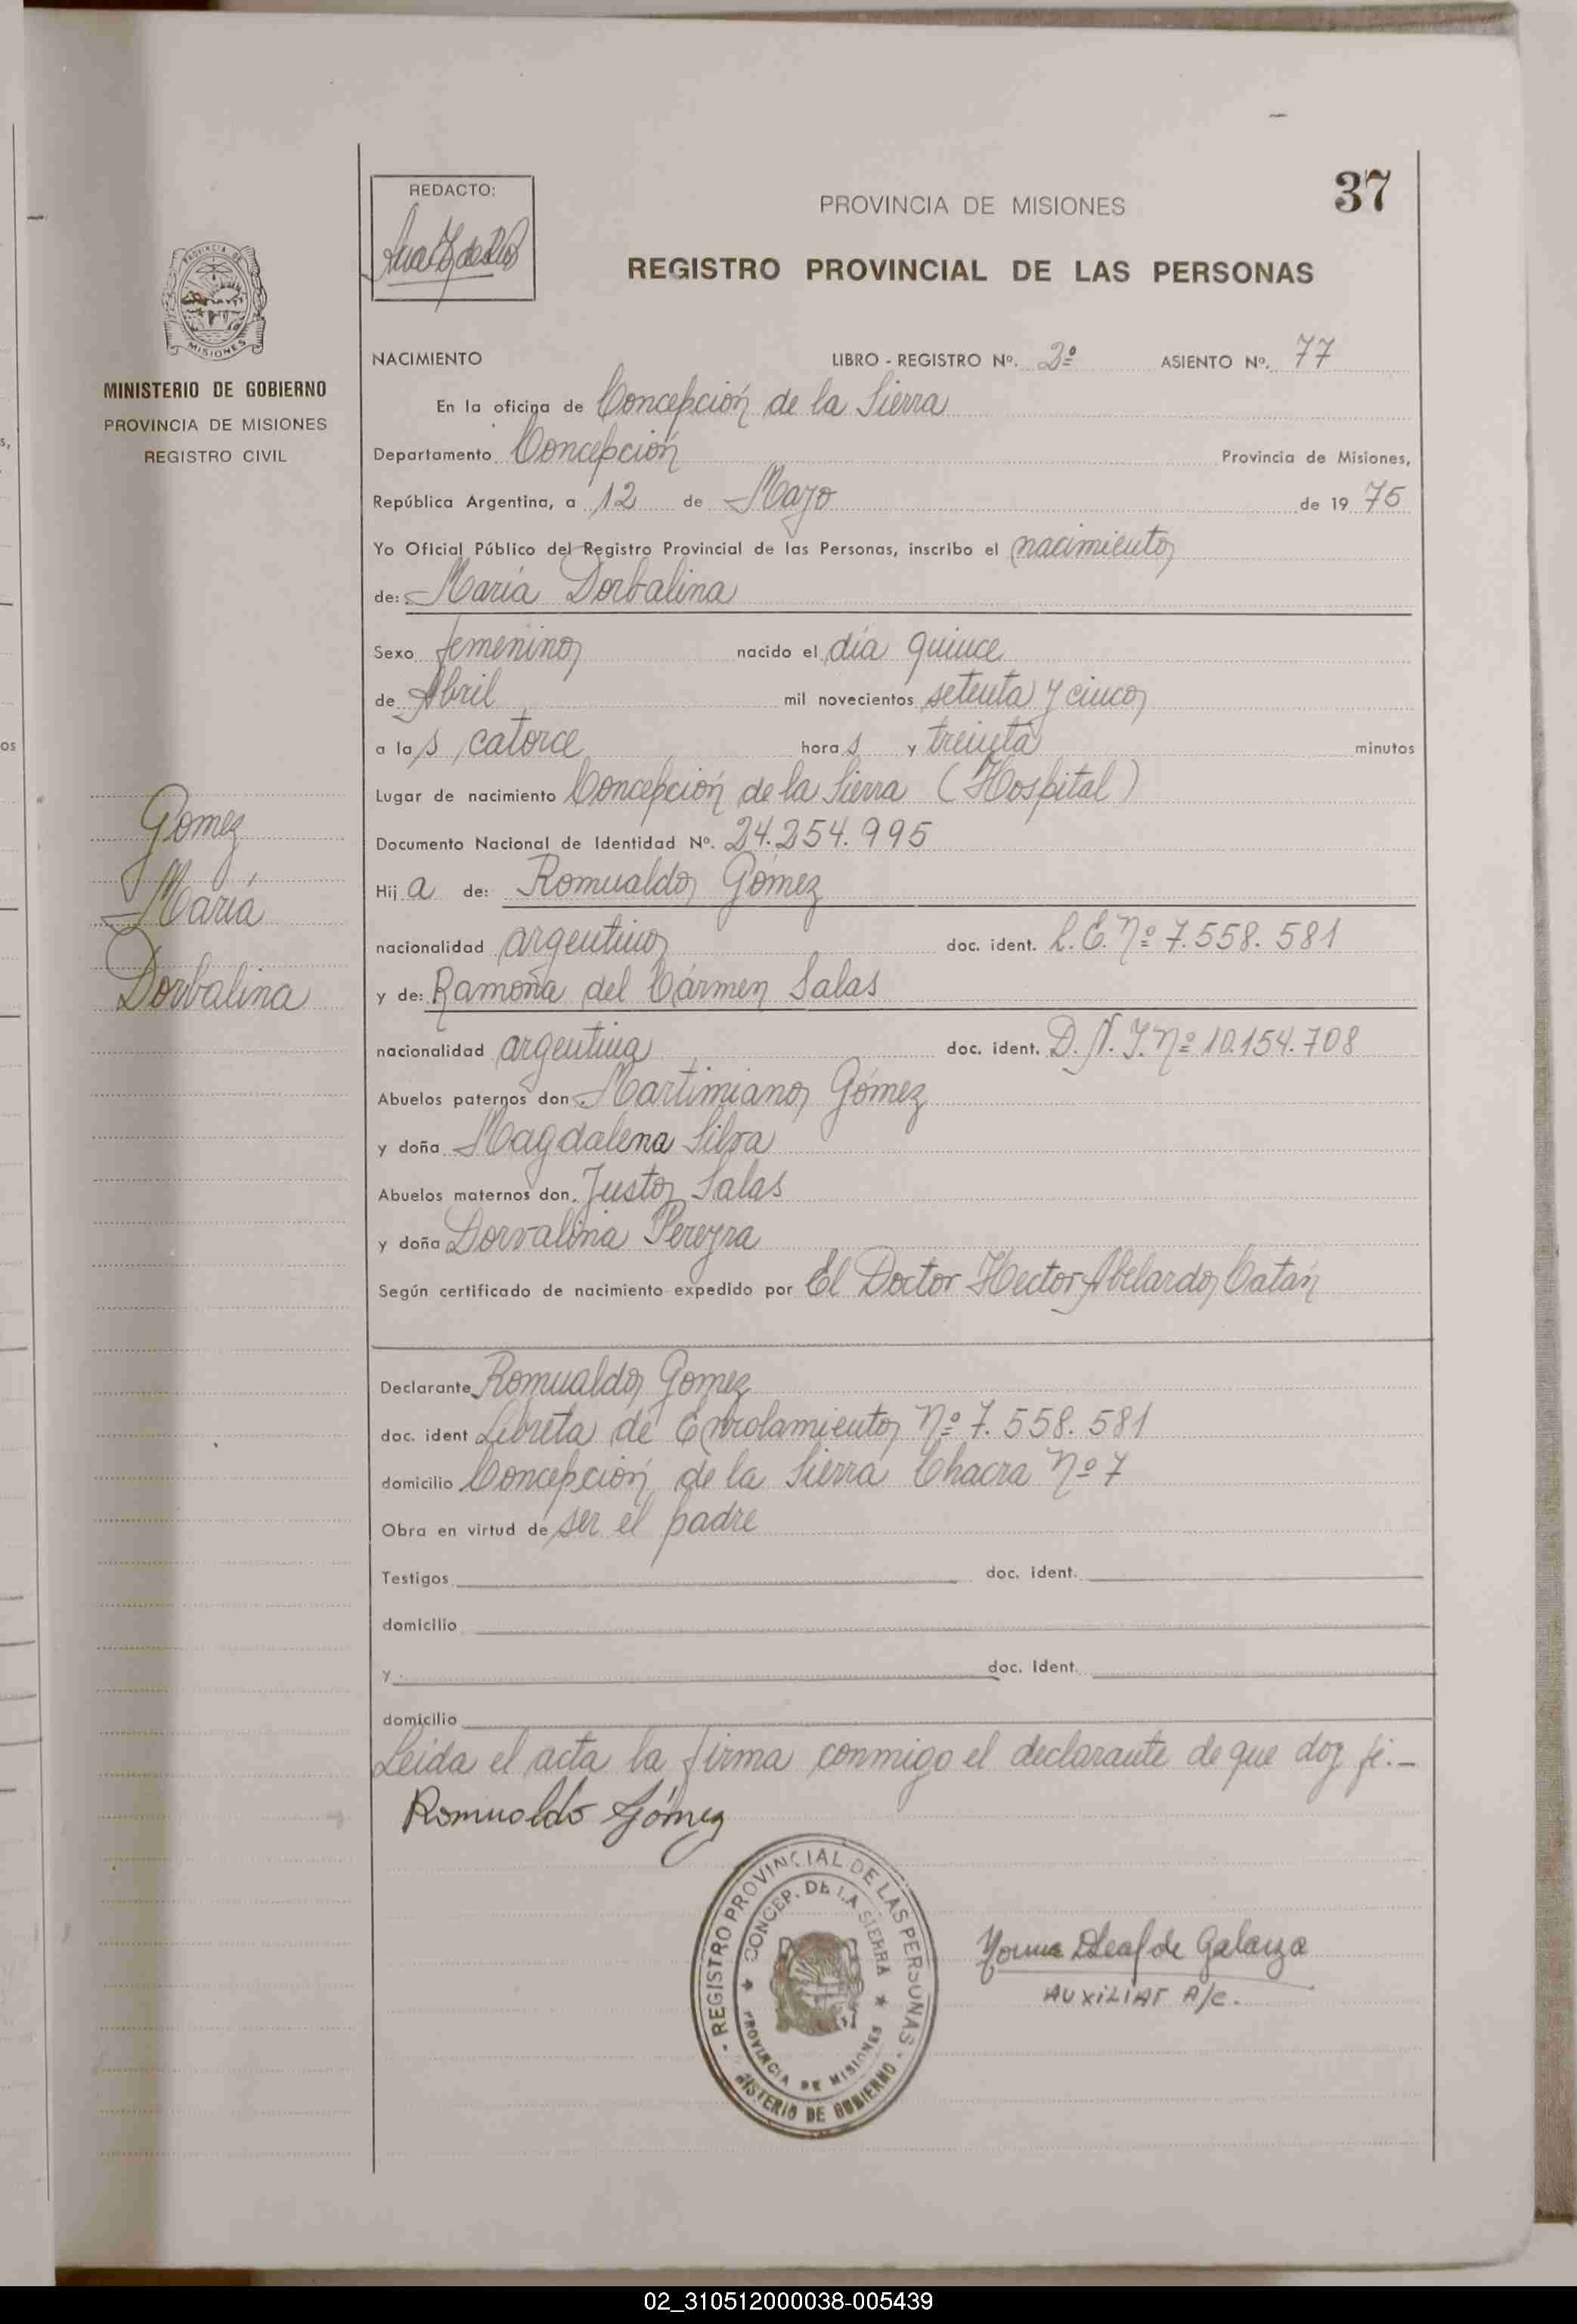 37
REDACTO:
PROVINCIA DE MISIONES
REGISTRO PROVINCIAL DE LAS PERSONAS
PROVINCIA DE
MISIONES
MINISTERIO DE GOBIERNO
PROVINCIA DE MISIONES
REGISTRO CIVIL
Gomez
María
Dorbalina
NACIMIENTO LIBRO - REGISTRO Nº. 2º ASIENTO Nº. 77
En la oficina de Concepción de la Sierra
Departamento Concepción Provincia de Misiones,
República Argentina, a 12 de Mayo de 19 75
Yo Oficial Público del Registro Provincial de las Personas, inscribo el nacimiento
de: María Dorbalina
Sexo femenino nacido el día quince
de Abril mil novecientos setenta y cinco
a las catorce horas y treinta minutos
Lugar de nacimiento Concepción de la Sierra (Hospital)
Documento Nacional de Identidad Nº. 24.254.995
Hija de: Romualdo Gómez
nacionalidad argentino doc. ident. L.E. Nº 7.558.581
y de: Ramona del Cármen Salas
nacionalidad argentina doc. ident. D.N.I. Nº 10.154.708
Abuelos paternos don Martimiano Gómez
y doña Magdalena Silva
Abuelos maternos don Justo Salas
y doña Dorvalina Pereyra
Según certificado de nacimiento expedido por El Doctor Hector Abelardo Catán
Declarante Romualdo Gomez
doc. ident Libreta de Enrolamiento Nº 7.558.581
domicilio Concepción de la Sierra Chacra Nº 7
Obra en virtud de ser el padre
Testigos doc. ident.
domicilio
y doc. Ident.
domicilio
Leída el acta la firma conmigo el declarante de que doy fé.-
Romualdo Gómez
REGISTRO PROVINCIAL DE LAS PERSONAS
CONCEP. DE LA SIERRA
PROVINCIA DE MISIONES
NISTERIO DE GOBIERNO
de Galarza
AUXILIAr A/C.
02_310512000038-005439